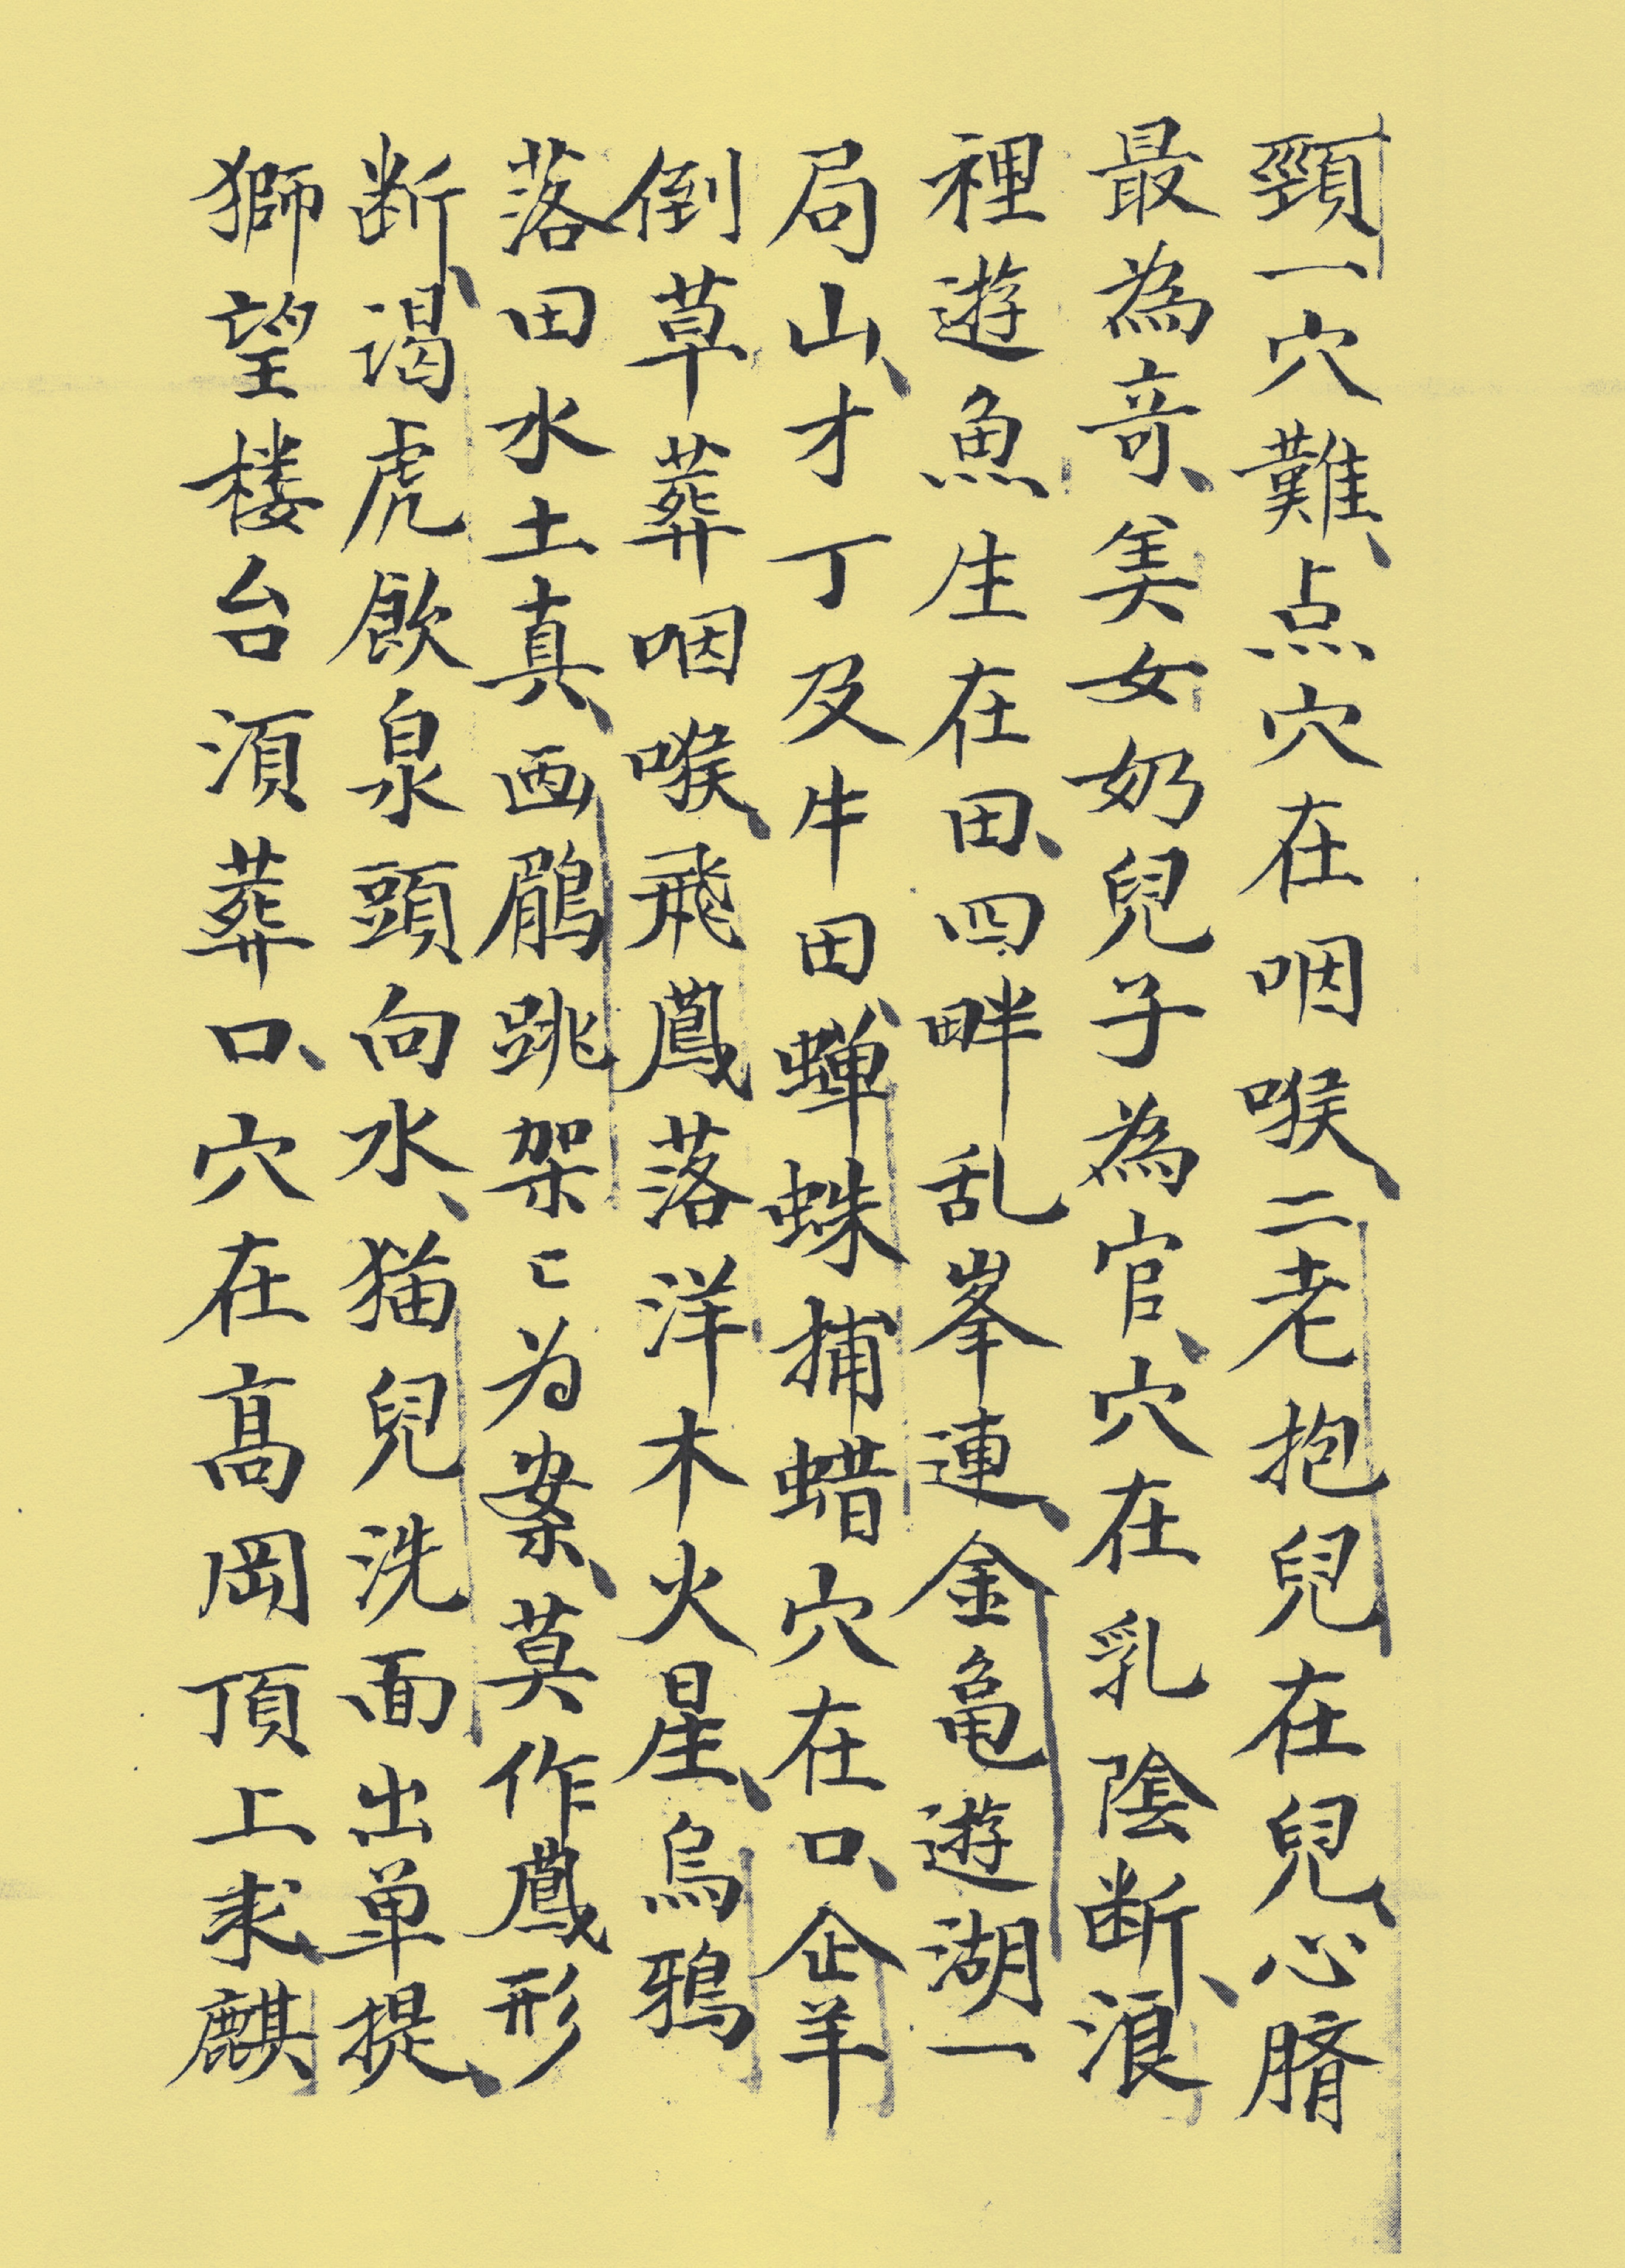 頸一穴難、点穴在咽喉、二老抱兒在兒、心臍
最為奇、美女奶兒子為官、穴在乳陰断、浪
裡遊魚生在田、四畔乱峯連、金亀遊湖一
局山、才丁及牛田、蟬蛛捕蜡穴在口、企羊
倒草葬咽喉、飛鳳落洋木火星、烏鴉
落田水土真、画鵑跳架㠯为案、莫作鳳形
断、渴虎飲泉頭向水、猫兒洗面出单提、
獅望楼台湏葬口、穴在高岡頂上求、麒